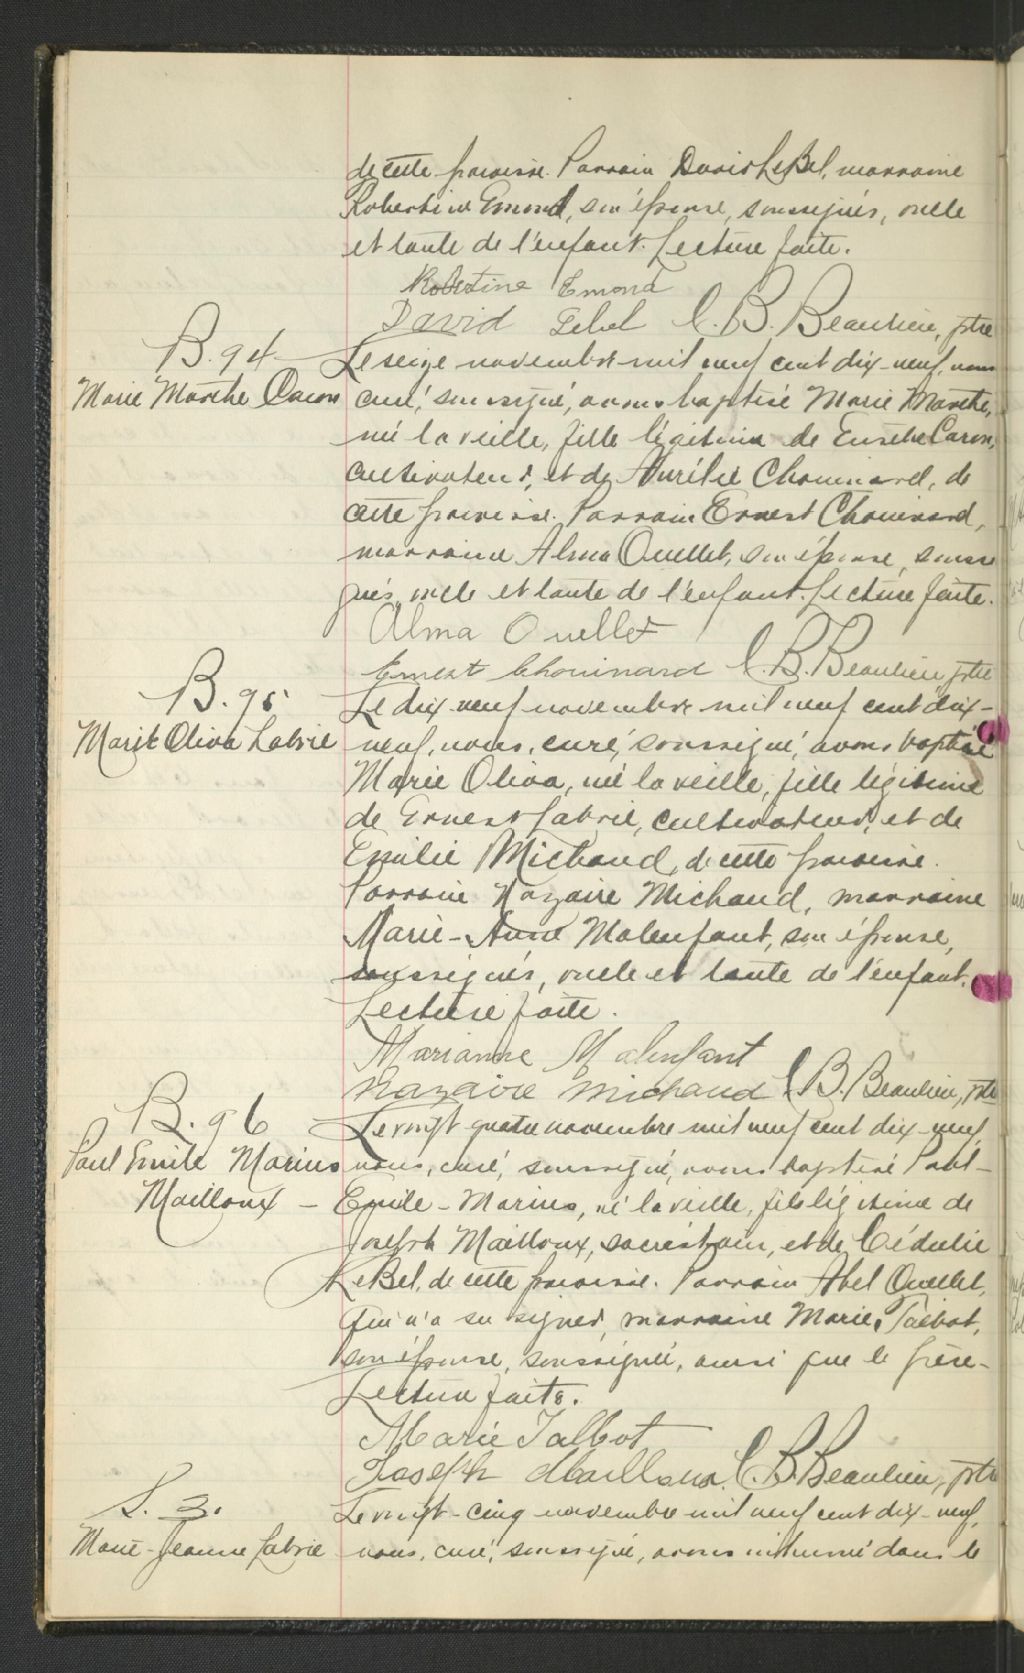 de cette paroisse. Parrain David LeBel, marraine
Robertine Emond, son épouse, soussignés, oncle
et tante de l'enfant. Lecture faite.
Robertine Emond
David Lebel C. B. Beaulieu, ptre
B. 94
Marie Marthe Caron
Le seize novembre mil neuf cent dix-neuf, nous
curé, soussigné, avons baptisé Marie Marthe,
née la veille, fille légitime de Eusèbe Caron,
cultivateur, et de Aurélie Chouinard, de
cette paroisse. Parrain Ernest Chouinard,
marraine Alma Ouellet, son épouse, soussi
gnés, oncle et tante de l'enfant. Lecture faite.
Alma Ouellet
Ernest Chouinard C. B. Beaulieu, ptre
B. 95
Marie Oliva Labrie
Le dix-neuf novembre mil neuf cent dix-
neuf, nous, curé, soussigné, avons baptisé
Marie Oliva, née la veille, fille légitime
de Ernest Labrie, cultivateur, et de
Emilie Michaud, de cette paroisse.
Parrain Nazaire Michaud, marraine
Marie-Anne Malenfant, son épouse,
soussignés, oncle et tante de l'enfant.
Lecture faite.
Marianne Malenfant
Nazaire Michaud C. B. Beaulieu, ptre
B. 96
Paul Emile Marius
Mailloux -
Le vingt-quatre novembre mil neuf cent dix-neuf,
nous, curé, soussigné, avons baptisé Paul-
Emile-Marius, né la veille, fils légitime de
Joseph Mailloux, sacristain, et de Cédulie
LeBel, de cette paroisse. Parrain Abel Ouellet,
qui n'a su signer, marraine Marie Talbot,
son épouse, soussignée, ainsi que le père-
Lecture faite.
Marie Talbot
Joseph Mailloux C. B. Beaulieu, ptre
S. 3.
Marie-Jeanne Labrie
Le vingt-cinq novembre mil neuf cent dix-neuf,
nous, curé, soussigné, avons inhumé dans le